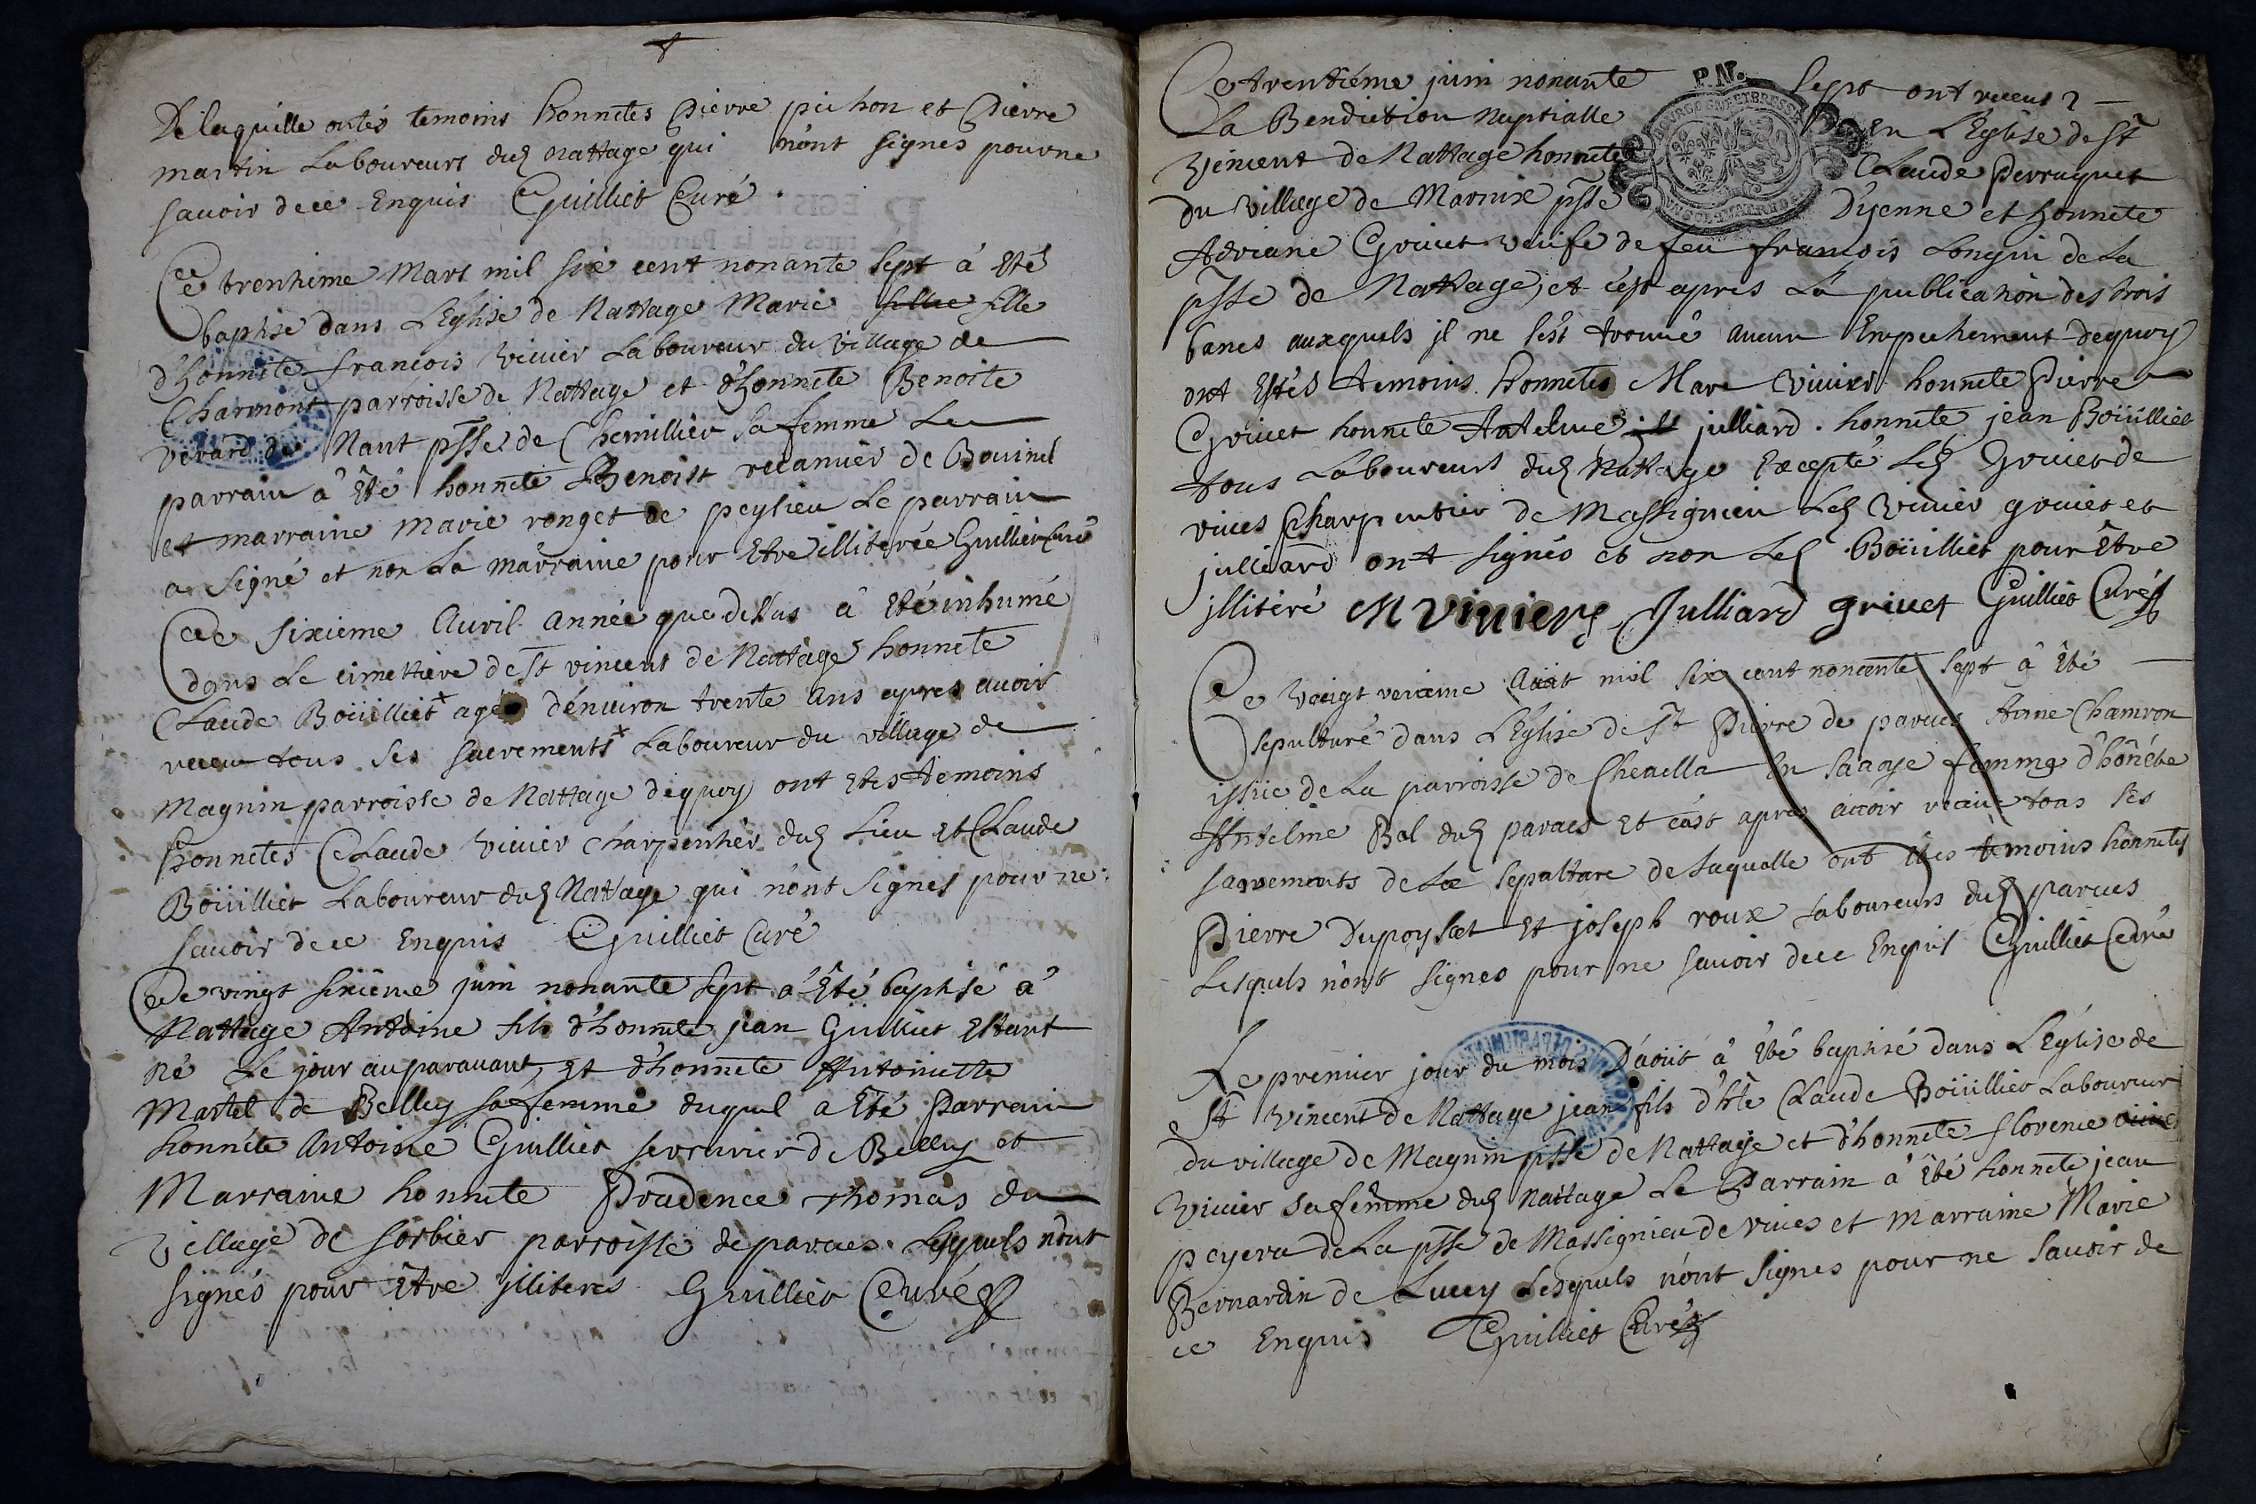 De laquelle ontés temoins honnetes Pierre pichon et Pierre
martin Laboureurs dud nattage qui n'ont signes pour ne
savoir de ce Enquis Guilliet Curé
Ce trentieme Mars mil six cent nonante sept à été
baptise dans L'Eglise de Nattage Marie fille
d'honnete francois vivier Laboureur du village de
Charmont parroisse de Nattage et d'honnete Benoite
verard de Nant psse de Chemillieu sa femme Le
parrain a été honnete Benoist recamier de Bovinel
et marraine Marie ronget de peylieu Le parrain
a signé et non La marraine pour etre illiterée Guilliet Curé
Ce sixieme Avril année que dessus à été inhumé
dans Le cimettiere de St vincent de Nattage honnete
Claude Boüilliet agé d'environ trente ans apres avoir
receu tous ses sacrements Laboureur du village de
Magnin parroisse de Nattage de quoy ont etes temoins
honnetes Claude vivier charpentier dud Lieu et Claude
Boüilliet Laboureur dud Nattage qui n'ont signes pour ne
savoir de ce Enquis Guilliet Curé
Ce vingt sixieme juin nonante sept a été baptisé à
Nattage Antoine fils d'honnete jean Guilliet Estant
né Le jour auparavant et d'honnete Antoinette
Martel de Belley sa femme duquel a été Parrain
honnete Antoine Guilliet serrurier de Belley et
Marraine honnete Prudence Thomas du
village de sorbier parroisse de parves Lesquels n'ont
signés pour être illiteres Guilliet Curé
P.N.
Ce trentiéme juin nonante sept ont receus
La Benediction Nuptialle En L'Eglise de St
vincent de Nattage honnete Claude Perraquet
du village de Marnix psse D'yenne et honnete
Adriane Grivet veufe de feu francois Longin de La
psse de Nattage, et c'est apres La publication des trois
bancs auxquels il ne s'est trouvé aucun Empechement de quoy
ont Estés temoins honnetes Marc vivier honnete Pierre
Grivet honnete Antelme julliard honnete jean Boüilliet
tous Laboureurs dud Nattage Excepté Led Grivet de
vives Charpentier de Massignieu Led vivier grivet et
julliard ont signés et non Led Boüilliet pour être
illiteré M viviers Julliard grivet Guilliet Curé
Ce vaingt Août mil six cent nonente sept à été
sepulturé dans L'Eglise de St Pierre de parves Anne Chamron
issüe de La parroisse de En Savoye femme d'hônéte
Antelme Bal dud parves Et c'est apres avoir receu tous ses
sacrements de La sepulture de Laquelle ont êtes temoins honnetes
Pierre Dupoysat Et joseph roux Laboureurs dud parves
Lesquels n'ont signes pour ne savoir de ce Enquis Guilliet Curé
Le premier jour du mois D'août à été baptisé dans L'Eglise de
St vincent de Nattage jean fils d'hte Claude Boüilliet Laboureur
du village de Magnin psse de Nattage et d'honnete florence
vivier sa femme dud Nattage Le Parrain a été honnete jean
peyera de La psse de Massignieu de vives et marraine Marie
Bernardin de Lucey Lesquels n'ont signes pour ne savoir de
ce Enquis Guilliet Curé